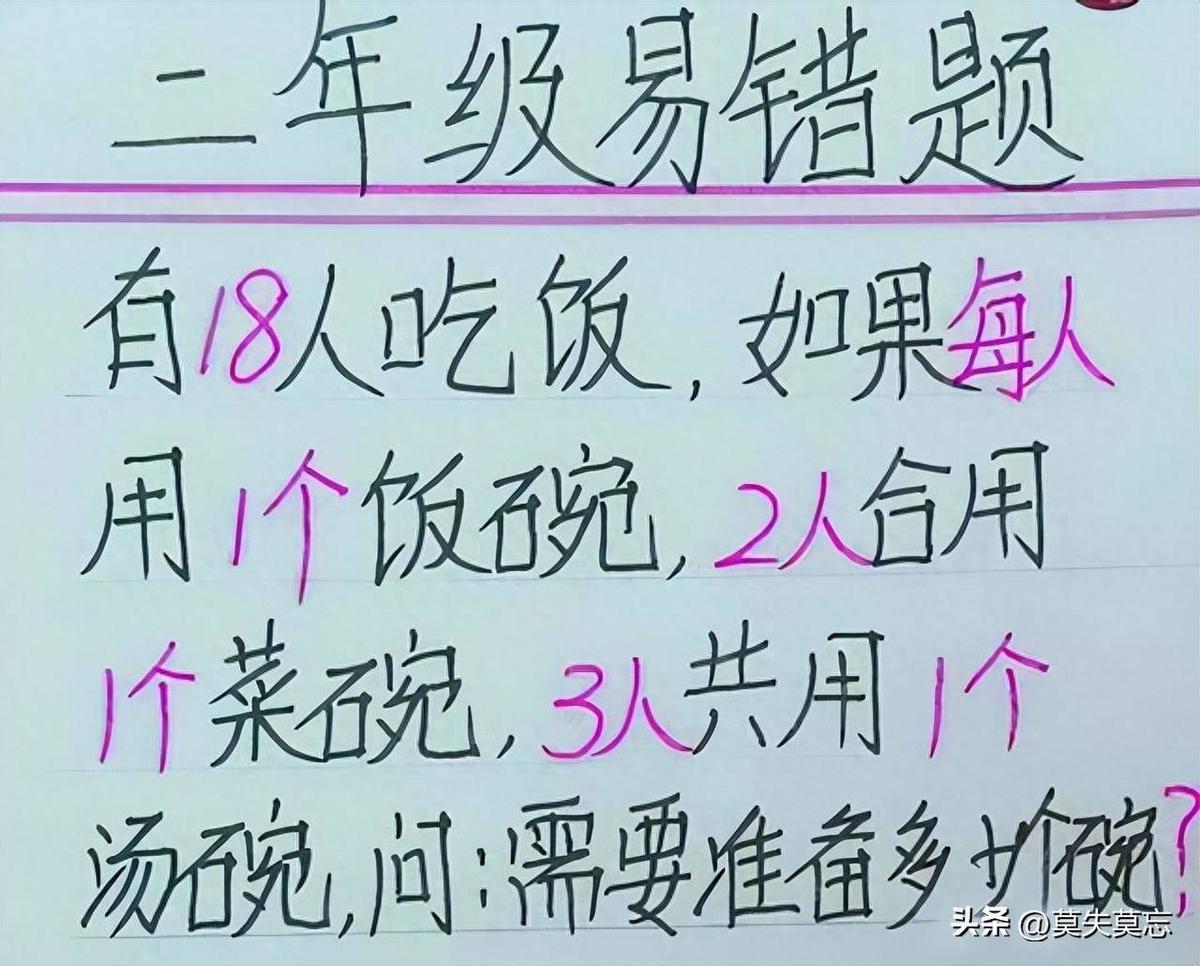 二年级易错题
有18人吃饭，如果每人
用1个饭碗，2人合用
1个菜碗，3人共用1个
汤碗，问：需要准备多少个碗？
头条 @莫失莫忘